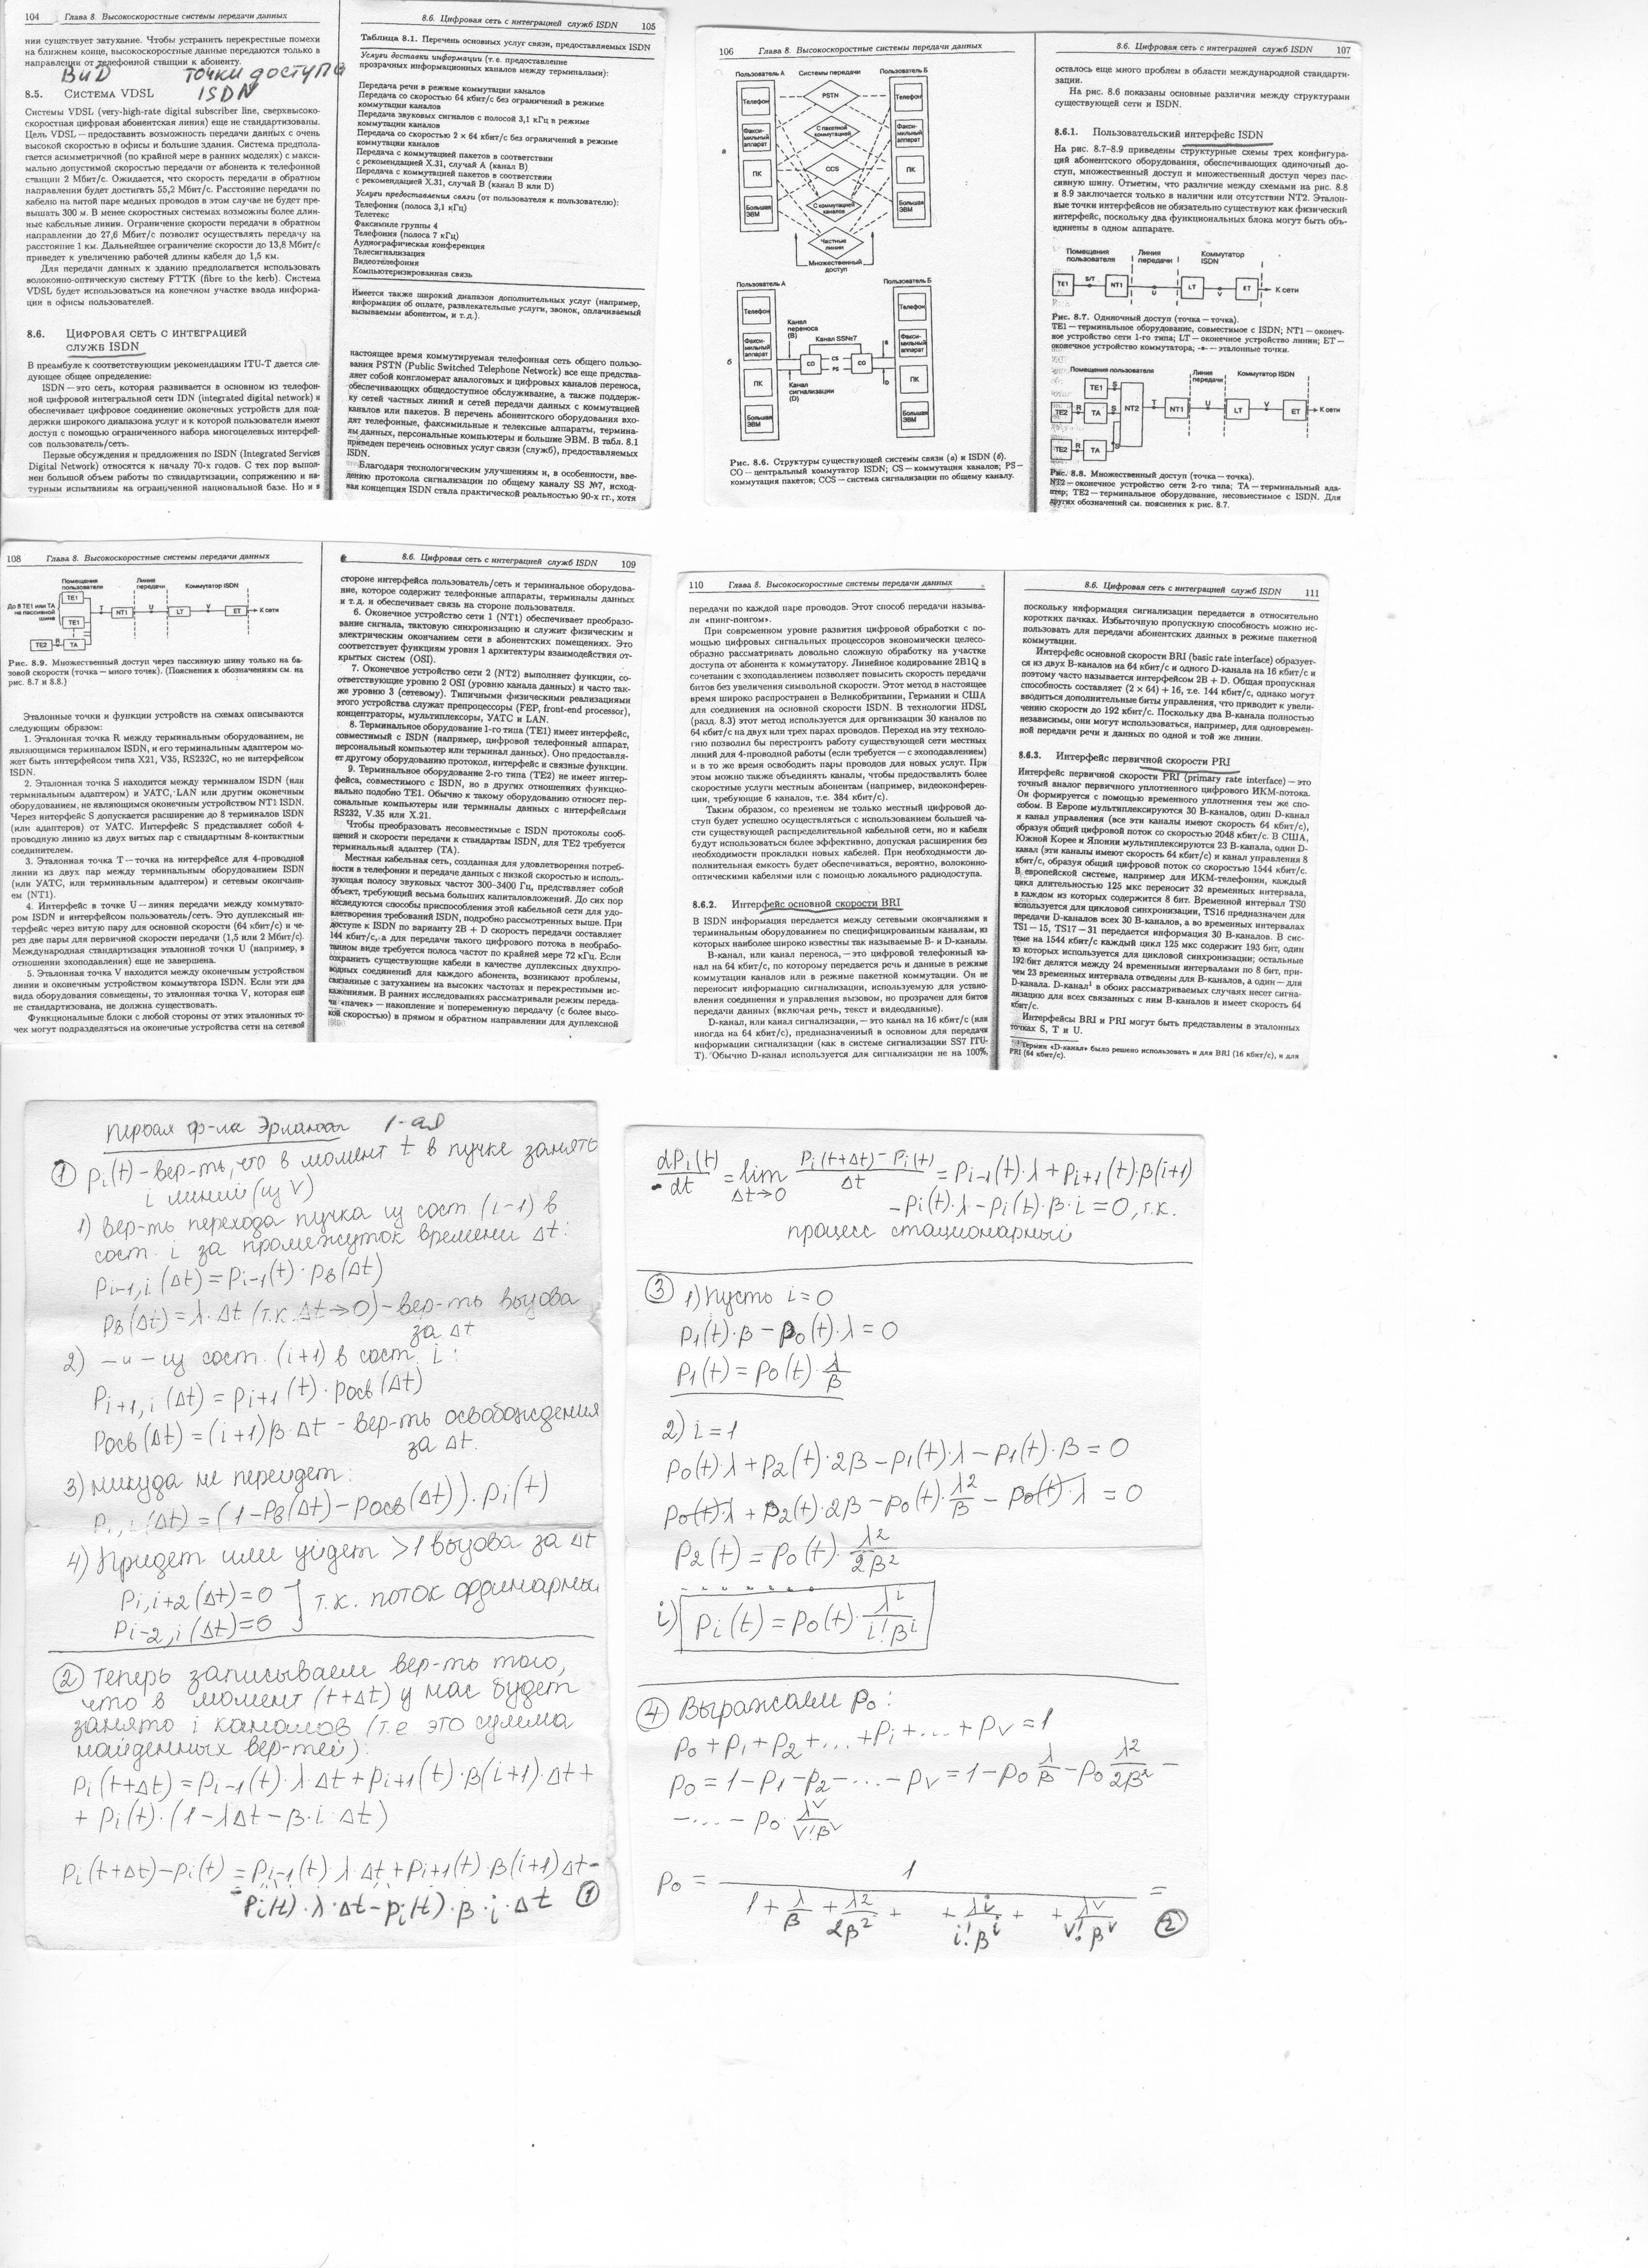 104 Глава 8. Высокоскоростные системы передачи данных
нии существует затухание. Чтобы устранить перекрестные помехи
на ближнем конце, высокоскоростные данные передаются только в
направлении от телефонной станции к абоненту.
ВИД ТОЧКИ ДОСТУПА
ISDN
8.5. Система VDSL
Системы VDSL (very-high-rate digital subscriber line, сверхвысоко-
скоростная цифровая абонентская линия) еще не стандартизованы.
Цель VDSL — предоставить возможность передачи данных с очень
высокой скоростью в офисы и большие здания. Система предпола-
гается асимметричной (по крайней мере в ранних моделях) с макси-
мально допустимой скоростью передачи от абонента к телефонной
станции 2 Мбит/с. Ожидается, что скорость передачи в обратном
направлении будет достигать 55,2 Мбит/с. Расстояние передачи по
кабелю на витой паре медных проводов в этом случае не будет пре-
вышать 300 м. В менее скоростных системах возможны более длин-
ные кабельные линии. Ограничение скорости передачи в обратном
направлении до 27,6 Мбит/с позволит осуществлять передачу на
расстояние 1 км. Дальнейшее ограничение скорости до 13,8 Мбит/с
приведет к увеличению рабочей длины кабеля до 1,5 км.
Для передачи данных к зданию предполагается использовать
волоконно-оптическую систему FTTK (fibre to the kerb). Система
VDSL будет использоваться на конечном участке ввода информа-
ции в офисы пользователей.
8.6. Цифровая сеть с интеграцией
служб ISDN
В преамбуле к соответствующим рекомендациям ITU-T дается сле-
дующее общее определение:
ISDN — это сеть, которая развивается в основном из телефон-
ной цифровой интегральной сети IDN (integrated digital network) и
обеспечивает цифровое соединение оконечных устройств для под-
держки широкого диапазона услуг и к которой пользователи имеют
доступ с помощью ограниченного набора многоцелевых интерфей-
сов пользователь/сеть.
Первые обсуждения и предложения по ISDN (Integrated Services
Digital Network) относятся к началу 70-х годов. С тех пор выпол-
нен большой объем работы по стандартизации, сопряжению и на-
турным испытаниям на ограниченной национальной базе. Но и в
8.6. Цифровая сеть с интеграцией служб ISDN 105
Таблица 8.1. Перечень основных услуг связи, предоставляемых ISDN
Услуги доставки информации (т.е. предоставление
прозрачных информационных каналов между терминалами):
Передача речи в режиме коммутации каналов
Передача со скоростью 64 кбит/с без ограничений в режиме
коммутации каналов
Передача звуковых сигналов с полосой 3,1 кГц в режиме
коммутации каналов
Передача со скоростью 2 × 64 кбит/с без ограничений в режиме
коммутации каналов
Передача с коммутацией пакетов в соответствии
с рекомендацией X.31, случай A (канал B)
Передача с коммутацией пакетов в соответствии
с рекомендацией X.31, случай B (канал B или D)
Услуги предоставления связи (от пользователя к пользователю):
Телефония (полоса 3,1 кГц)
Телетекс
Факсимиле группы 4
Телефония (полоса 7 кГц)
Аудиографическая конференция
Телесигнализация
Видеотелефония
Компьютеризированная связь
Имеется также широкий диапазон дополнительных услуг (например,
информация об оплате, развлекательные услуги, звонок, оплачиваемый
вызываемым абонентом, и т.д.).
настоящее время коммутируемая телефонная сеть общего пользо-
вания PSTN (Public Switched Telephone Network) все еще представ-
ляет собой конгломерат аналоговых и цифровых каналов переноса,
обеспечивающих общедоступное обслуживание, а также поддерж-
ку сетей частных линий и сетей передачи данных с коммутацией
каналов или пакетов. В перечень абонентского оборудования вхо-
дят телефонные, факсимильные и телексные аппараты, термина-
лы данных, персональные компьютеры и большие ЭВМ. В табл. 8.1
приведен перечень основных услуг связи (служб), предоставляемых
ISDN.
Благодаря технологическим улучшениям и, в особенности, вве-
дению протокола сигнализации по общему каналу SS №7, исход-
ная концепция ISDN стала практической реальностью 90-х гг., хотя
106 Глава 8. Высокоскоростные системы передачи данных
Пользователь А Системы передачи Пользователь Б
Телефон PSTN Телефон
Факси-мильный аппарат С пакетной коммутацией Факси-мильный аппарат
а
ПК CCS ПК
Большая ЭВМ С коммутацией каналов Большая ЭВМ
Частные линии
Множественный доступ
Пользователь А Пользователь Б
Телефон Телефон
Канал переноса (B) Канал SS№7
Факси-мильный аппарат CS Факси-мильный аппарат
б CO PS CO
ПК Канал сигнализации (D) ПК
Большая ЭВМ Большая ЭВМ
Рис. 8.6. Структуры существующей системы связи (а) и ISDN (б).
CO — центральный коммутатор ISDN; CS — коммутация каналов; PS —
коммутация пакетов; CCS — система сигнализации по общему каналу.
8.6. Цифровая сеть с интеграцией служб ISDN 107
осталось еще много проблем в области международной стандарти-
зации.
На рис. 8.6 показаны основные различия между структурами
существующей сети и ISDN.
8.6.1. Пользовательский интерфейс ISDN
На рис. 8.7–8.9 приведены структурные схемы трех конфигура-
ций абонентского оборудования, обеспечивающих одиночный до-
ступ, множественный доступ и множественный доступ через пас-
сивную шину. Отметим, что различие между схемами на рис. 8.8
и 8.9 заключается только в наличии или отсутствии NT2. Эталон-
ные точки интерфейсов не обязательно существуют как физический
интерфейс, поскольку два функциональных блока могут быть объ-
единены в одном аппарате.
Помещения пользователя Линия передачи Коммутатор ISDN
TE1 S/T NT1 U LT V ET К сети
Рис. 8.7. Одиночный доступ (точка — точка).
TE1 — терминальное оборудование, совместимое с ISDN; NT1 — оконеч-
ное устройство сети 1-го типа; LT — оконечное устройство линии; ET —
оконечное устройство коммутатора; -•- — эталонные точки.
Помещения пользователя Линия передачи Коммутатор ISDN
TE1 S
TE2 R TA S NT2 T NT1 U LT V ET К сети
TE2 R TA S
Рис. 8.8. Множественный доступ (точка — точка).
NT2 — оконечное устройство сети 2-го типа; TA — терминальный ада-
птер; TE2 — терминальное оборудование, несовместимое с ISDN. Для
других обозначений см. пояснения к рис. 8.7.
108 Глава 8. Высокоскоростные системы передачи данных
Помещения пользователя Линия передачи Коммутатор ISDN
До 8 TE1 или TA на пассивной шине
TE1 T NT1 U LT V ET К сети
TE1
TE2 R TA
Рис. 8.9. Множественный доступ через пассивную шину только на ба-
зовой скорости (точка — много точек). (Пояснения к обозначениям см. на
рис. 8.7 и 8.8.)
Эталонные точки и функции устройств на схемах описываются
следующим образом:
1. Эталонная точка R между терминальным оборудованием, не
являющимся терминалом ISDN, и его терминальным адаптером мо-
жет быть интерфейсом типа X21, V35, RS232C, но не интерфейсом
ISDN.
2. Эталонная точка S находится между терминалом ISDN (или
терминальным адаптером) и УАТС, LAN или другим оконечным
оборудованием, не являющимся оконечным устройством NT1 ISDN.
Через интерфейс S допускается расширение до 8 терминалов ISDN
(или адаптеров) от УАТС. Интерфейс S представляет собой 4-
проводную линию из двух витых пар с стандартным 8-контактным
соединителем.
3. Эталонная точка T — точка на интерфейсе для 4-проводной
линии из двух пар между терминальным оборудованием ISDN
(или УАТС, или терминальным адаптером) и сетевым окончани-
ем (NT1).
4. Интерфейс в точке U — линия передачи между коммутато-
ром ISDN и интерфейсом пользователь/сеть. Это дуплексный ин-
терфейс через витую пару для основной скорости (64 кбит/с) и че-
рез две пары для первичной скорости передачи (1,5 или 2 Мбит/с).
Международная стандартизация эталонной точки U (например, в
отношении эхоподавления) еще не завершена.
5. Эталонная точка V находится между оконечным устройством
линии и оконечным устройством коммутатора ISDN. Если эти два
вида оборудования совмещены, то эталонная точка V, которая еще
не стандартизована, не должна существовать.
Функциональные блоки с любой стороны от этих эталонных то-
чек могут подразделяться на оконечные устройства сети на сетевой
8.6. Цифровая сеть с интеграцией служб ISDN 109
стороне интерфейса пользователь/сеть и терминальное оборудова-
ние, которое содержит телефонные аппараты, терминалы данных
и т.д. и обеспечивает связь на стороне пользователя.
6. Оконечное устройство сети 1 (NT1) обеспечивает преобразо-
вание сигнала, тактовую синхронизацию и служит физическим и
электрическим окончанием сети в абонентских помещениях. Это
соответствует функциям уровня 1 архитектуры взаимодействия от-
крытых систем (OSI).
7. Оконечное устройство сети 2 (NT2) выполняет функции, со-
ответствующие уровню 2 OSI (уровню канала данных) и часто так-
же уровню 3 (сетевому). Типичными физическими реализациями
этого устройства служат препроцессоры (FEP, front-end processor),
концентраторы, мультиплексоры, УАТС и LAN.
8. Терминальное оборудование 1-го типа (TE1) имеет интерфейс,
совместимый с ISDN (например, цифровой телефонный аппарат,
персональный компьютер или терминал данных). Оно предоставля-
ет другому оборудованию протокол, интерфейс и связные функции.
9. Терминальное оборудование 2-го типа (TE2) не имеет интер-
фейса, совместимого с ISDN, но в других отношениях функцио-
нально подобно TE1. Обычно к такому оборудованию относят пер-
сональные компьютеры или терминалы данных с интерфейсами
RS232, V.35 или X.21.
Чтобы преобразовать несовместимые с ISDN протоколы сооб-
щений и скорости передачи к стандартам ISDN, для TE2 требуется
терминальный адаптер (TA).
Местная кабельная сеть, созданная для удовлетворения потреб-
ности в телефонии и передаче данных с низкой скоростью и исполь-
зующая полосу звуковых частот 300–3400 Гц, представляет собой
объект, требующий весьма больших капиталовложений. До сих пор
исследуются способы приспособления этой кабельной сети для удо-
влетворения требований ISDN, подробно рассмотренных выше. При
доступе к ISDN по варианту 2B + D скорость передачи составляет
144 кбит/с, а для передачи такого цифрового потока в необрабо-
танном виде требуется полоса частот по крайней мере 72 кГц. Если
сохранить существующие кабели в качестве дуплексных двухпро-
водных соединений для каждого абонента, возникают проблемы,
связанные с затуханием на высоких частотах и перекрестными ис-
кажениями. В ранних исследованиях рассматривали режим переда-
чи «пачек» — накопление и попеременную передачу (с более высо-
кой скоростью) в прямом и обратном направлении для дуплексной
110 Глава 8. Высокоскоростные системы передачи данных
передачи по каждой паре проводов. Этот способ передачи называ-
ли «пинг-понгом».
При современном уровне развития цифровой обработки с по-
мощью цифровых сигнальных процессоров экономически целесо-
образно рассматривать довольно сложную обработку на участке
доступа от абонента к коммутатору. Линейное кодирование 2B1Q в
сочетании с эхоподавлением позволяет повысить скорость передачи
битов без увеличения символьной скорости. Этот метод в настоящее
время широко распространен в Великобритании, Германии и США
для соединения на основной скорости ISDN. В технологии HDSL
(разд. 8.3) этот метод используется для организации 30 каналов по
64 кбит/с на двух или трех парах проводов. Переход на эту техноло-
гию позволил бы перестроить работу существующей сети местных
линий для 4-проводной работы (если требуется — с эхоподавлением)
и в то же время освободить пары проводов для новых услуг. При
этом можно также объединять каналы, чтобы предоставлять более
скоростные услуги местным абонентам (например, видеоконферен-
ции, требующие 6 каналов, т.е. 384 кбит/с).
Таким образом, со временем не только местный цифровой до-
ступ будет успешно осуществляться с использованием большей ча-
сти существующей распределительной кабельной сети, но и кабели
будут использоваться более эффективно, допуская расширения без
необходимости прокладки новых кабелей. При необходимости до-
полнительная емкость будет обеспечиваться, вероятно, волоконно-
оптическими кабелями или с помощью локального радиодоступа.
8.6.2. Интерфейс основной скорости BRI
В ISDN информация передается между сетевыми окончаниями и
терминальным оборудованием по специфицированным каналам, из
которых наиболее широко известны так называемые B- и D-каналы.
B-канал, или канал переноса, — это цифровой телефонный ка-
нал на 64 кбит/с, по которому передается речь и данные в режиме
коммутации каналов или в режиме пакетной коммутации. Он не
переносит информацию сигнализации, используемую для устано-
вления соединения и управления вызовом, но прозрачен для битов
передачи данных (включая речь, текст и видеоданные).
D-канал, или канал сигнализации, — это канал на 16 кбит/с (или
иногда на 64 кбит/с), предназначенный в основном для передачи
информации сигнализации (как в системе сигнализации SS7 ITU-
T). Обычно D-канал используется для сигнализации не на 100%,
8.6. Цифровая сеть с интеграцией служб ISDN 111
поскольку информация сигнализации передается в относительно
коротких пачках. Избыточную пропускную способность можно ис-
пользовать для передачи абонентских данных в режиме пакетной
коммутации.
Интерфейс основной скорости BRI (basic rate interface) образует-
ся из двух B-каналов на 64 кбит/с и одного D-канала на 16 кбит/с и
поэтому часто называется интерфейсом 2B + D. Общая пропускная
способность составляет (2 × 64) + 16, т.е. 144 кбит/с, однако могут
вводиться дополнительные биты управления, что приводит к увели-
чению скорости до 192 кбит/с. Поскольку два B-канала полностью
независимы, они могут использоваться, например, для одновремен-
ной передачи речи и данных по одной и той же линии.
8.6.3. Интерфейс первичной скорости PRI
Интерфейс первичной скорости PRI (primary rate interface) — это
точный аналог первичного уплотненного цифрового ИКМ-потока.
Он формируется с помощью временного уплотнения тем же спо-
собом. В Европе мультиплексируются 30 B-каналов, один D-канал
и канал управления (все эти каналы имеют скорость 64 кбит/с),
образуя общий цифровой поток со скоростью 2048 кбит/с. В США,
Южной Корее и Японии мультиплексируются 23 B-канала, один D-
канал (эти каналы имеют скорость 64 кбит/с) и канал управления 8
кбит/с, образуя общий цифровой поток со скоростью 1544 кбит/с.
В европейской системе, например для ИКМ-телефонии, каждый
цикл длительностью 125 мкс переносит 32 временных интервала,
в каждом из которых содержится 8 бит. Временной интервал TS0
используется для цикловой синхронизации, TS16 предназначен для
передачи D-каналов всех 30 B-каналов, а во временных интервалах
TS1–15, TS17–31 передается информация 30 B-каналов. В сис-
теме на 1544 кбит/с каждый цикл 125 мкс содержит 193 бит, один
из которых используется для цикловой синхронизации; остальные
192 бит делятся между 24 временными интервалами по 8 бит, при-
чем 23 временных интервала отведены для B-каналов, а один — для
D-канала. D-канал¹ в обоих рассматриваемых случаях несет сигна-
лизацию для всех связанных с ним B-каналов и имеет скорость 64
кбит/с.
Интерфейсы BRI и PRI могут быть представлены в эталонных
точках S, T и U.
¹ Термин «D-канал» было решено использовать и для BRI (16 кбит/с), и для
PRI (64 кбит/с).
Первая ф-ла Эрланга 1-ая
① Pi(t) – вер-ть, что в момент t в пучке занято
i линий (из V)
1) Вер-ть перехода пучка из сост. (i-1) в
сост. i за промежуток времени Δt:
Pi-1,i(Δt) = Pi-1(t)·Pв(Δt)
Pв(Δt) = λ·Δt (т.к. Δt→0) – вер-ть вызова
за Δt
2) –и– из сост. (i+1) в сост. i:
Pi+1,i(Δt) = Pi+1(t)·Pосв(Δt)
Pосв(Δt) = (i+1)β·Δt – вер-ть освобождения
за Δt.
3) Никуда не перейдет:
Pi,i(Δt) = (1-Pв(Δt)-Pосв(Δt))·Pi(t)
4) Придет или уйдет >1 вызова за Δt
Pi,i+2(Δt)=0
Pi-2,i(Δt)=0 ] т.к. поток ординарный
② Теперь записываем вер-ть того,
что в момент (t+Δt) у нас будет
занято i каналов (т.е. это сумма
найденных вер-тей):
Pi(t+Δt) = Pi-1(t)·λ·Δt + Pi+1(t)·β(i+1)·Δt +
+ Pi(t)·(1-λΔt-β·i·Δt)
Pi(t+Δt)-Pi(t) = Pi-1(t)·λ·Δt + Pi+1(t)·β(i+1)Δt-
-Pi(t)·λ·Δt-Pi(t)·β·i·Δt ①
dPi(t)/dt = lim Δt→0 (Pi(t+Δt)-Pi(t))/Δt = Pi-1(t)·λ+Pi+1(t)β(i+1)
-Pi(t)·λ-Pi(t)·β·i=0, т.к.
процесс стационарный
③ 1) Пусть i=0
P1(t)·β-P0(t)·λ=0
P1(t)=P0(t)·λ/β
2) i=1
P0(t)·λ+P2(t)·2β-P1(t)·λ-P1(t)·β=0
P0(t)·λ+P2(t)·2β-P0(t)·λ²/β-P0(t)·λ=0
P2(t)=P0(t)·λ²/2β²
i) Pi(t)=P0(t)·λ^i/i!β^i
④ Выражаем P0:
P0+P1+P2+...+Pi+...+PV=1
P0=1-P1-P2-...-PV=1-P0 λ/β-P0 λ²/2β²-
-...-P0·λ^V/V!β^V
P0 = 1/(1+λ/β+λ²/2β²+ +λ^i/i!β^i+ +λ^V/V!β^V) = ②